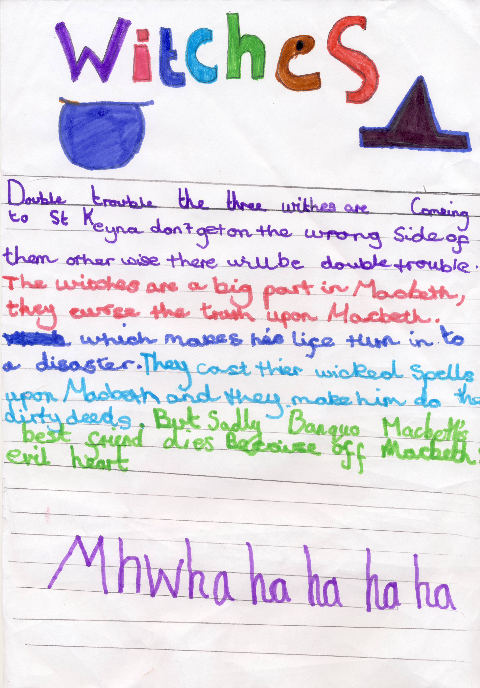 Witches
Double trouble the three withes are Comeing
to St Keyna don't get on the wrong Side of
them other wise there will be double trouble.
The witches are a big part in Macbeth,
they curse the truth upon Macbeth.
which makes his life turn in to
a disaster. They cast thier wicked Spells
upon Macbeth and they make him do the
dirty deeds. But Sadly Banquo Macbeth's
best friend dies Because off Macbeth's
evil heart
Mhwha ha ha ha ha